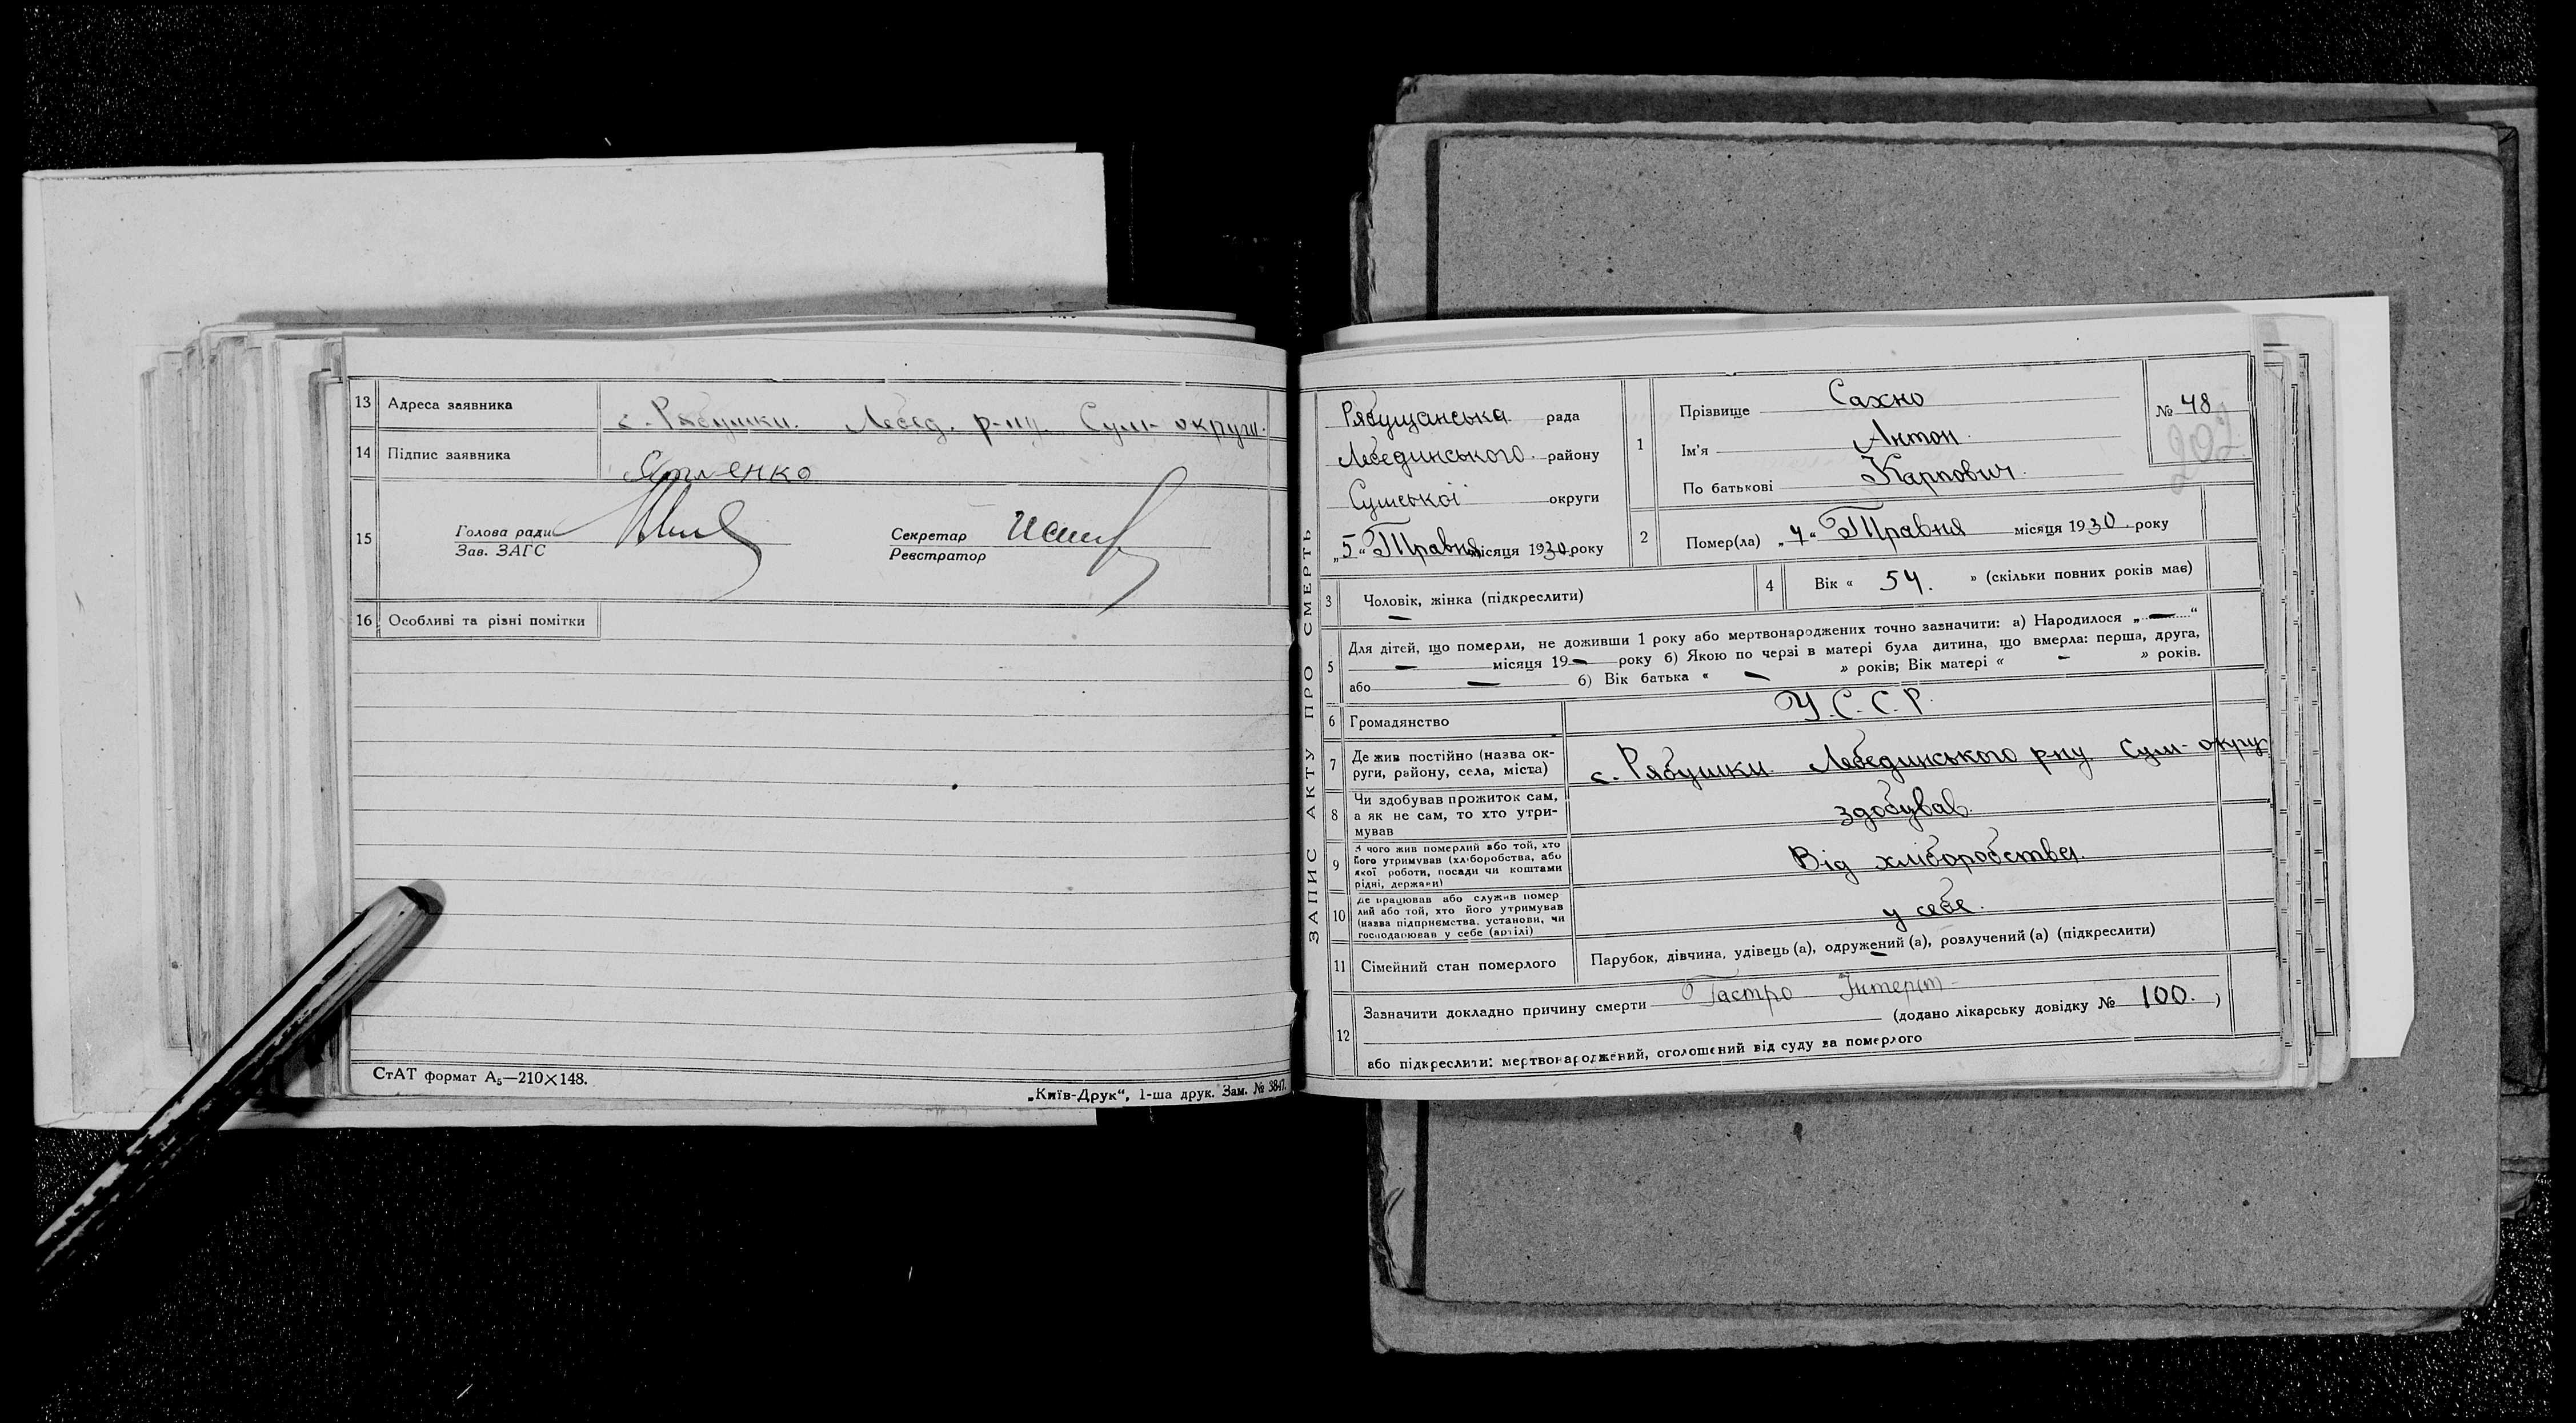 13 Адреса заявника с. Рябушки. Лебед. р-ну. Сум- округи.
14 Підпис заявника
15 Голова ради
Зав. ЗАГС
Секретар
Реєстратор
16 Особливі та різні помітки
СтАТ формат А₅—210×148.
„Київ-Друк“, 1-ша друк. Зам. № 3847.
ЗАПИС АКТУ ПРО СМЕРТЬ
Рябущанська рада
Лебединського району
Сумської округи
„5“ Травня місяця 1930 року
1 Прізвище Сахно
Ім'я Антон
По батькові Карпович
№ 48
202
2 Помер(ла) „4“ Травня місяця 1930 року
3 Чоловік, жінка (підкреслити)
4 Вік « 54. » (скільки повних років має)
5 Для дітей, що померли, не доживши 1 року або мертвонароджених точно зазначити: а) Народилося „—“
— місяця 19— року б) Якою по черзі в матері була дитина, що вмерла: перша, друга,
або — б) Вік батька « — » років; Вік матері « — » років.
6 Громадянство У.С.С.Р.
7 Де жив постійно (назва ок-
руги, району, села, міста) с. Рябушки Лебединського рну Сум- округ
8 Чи здобував прожиток сам,
а як не сам, то хто утри-
мував здобував.
9 З чого жив померлий або той, хто
його утримував (хліборобства, або
якої роботи, посади чи коштами
рідні, держави) Від хліборобства.
10 Де працював або служив помер
лий або той, хто його утримував
(назва підприємства, установи, чи
господарював у себе (артілі) у себе.
11 Сімейний стан померлого Парубок, дівчина, удівець (а), одружений (а), розлучений (а) (підкреслити)
12 Зазначити докладно причину смерти Гастро Інтеріт
(додано лікарську довідку № 100. )
або підкреслити: мертвонароджений, оголошений від суду за померлого